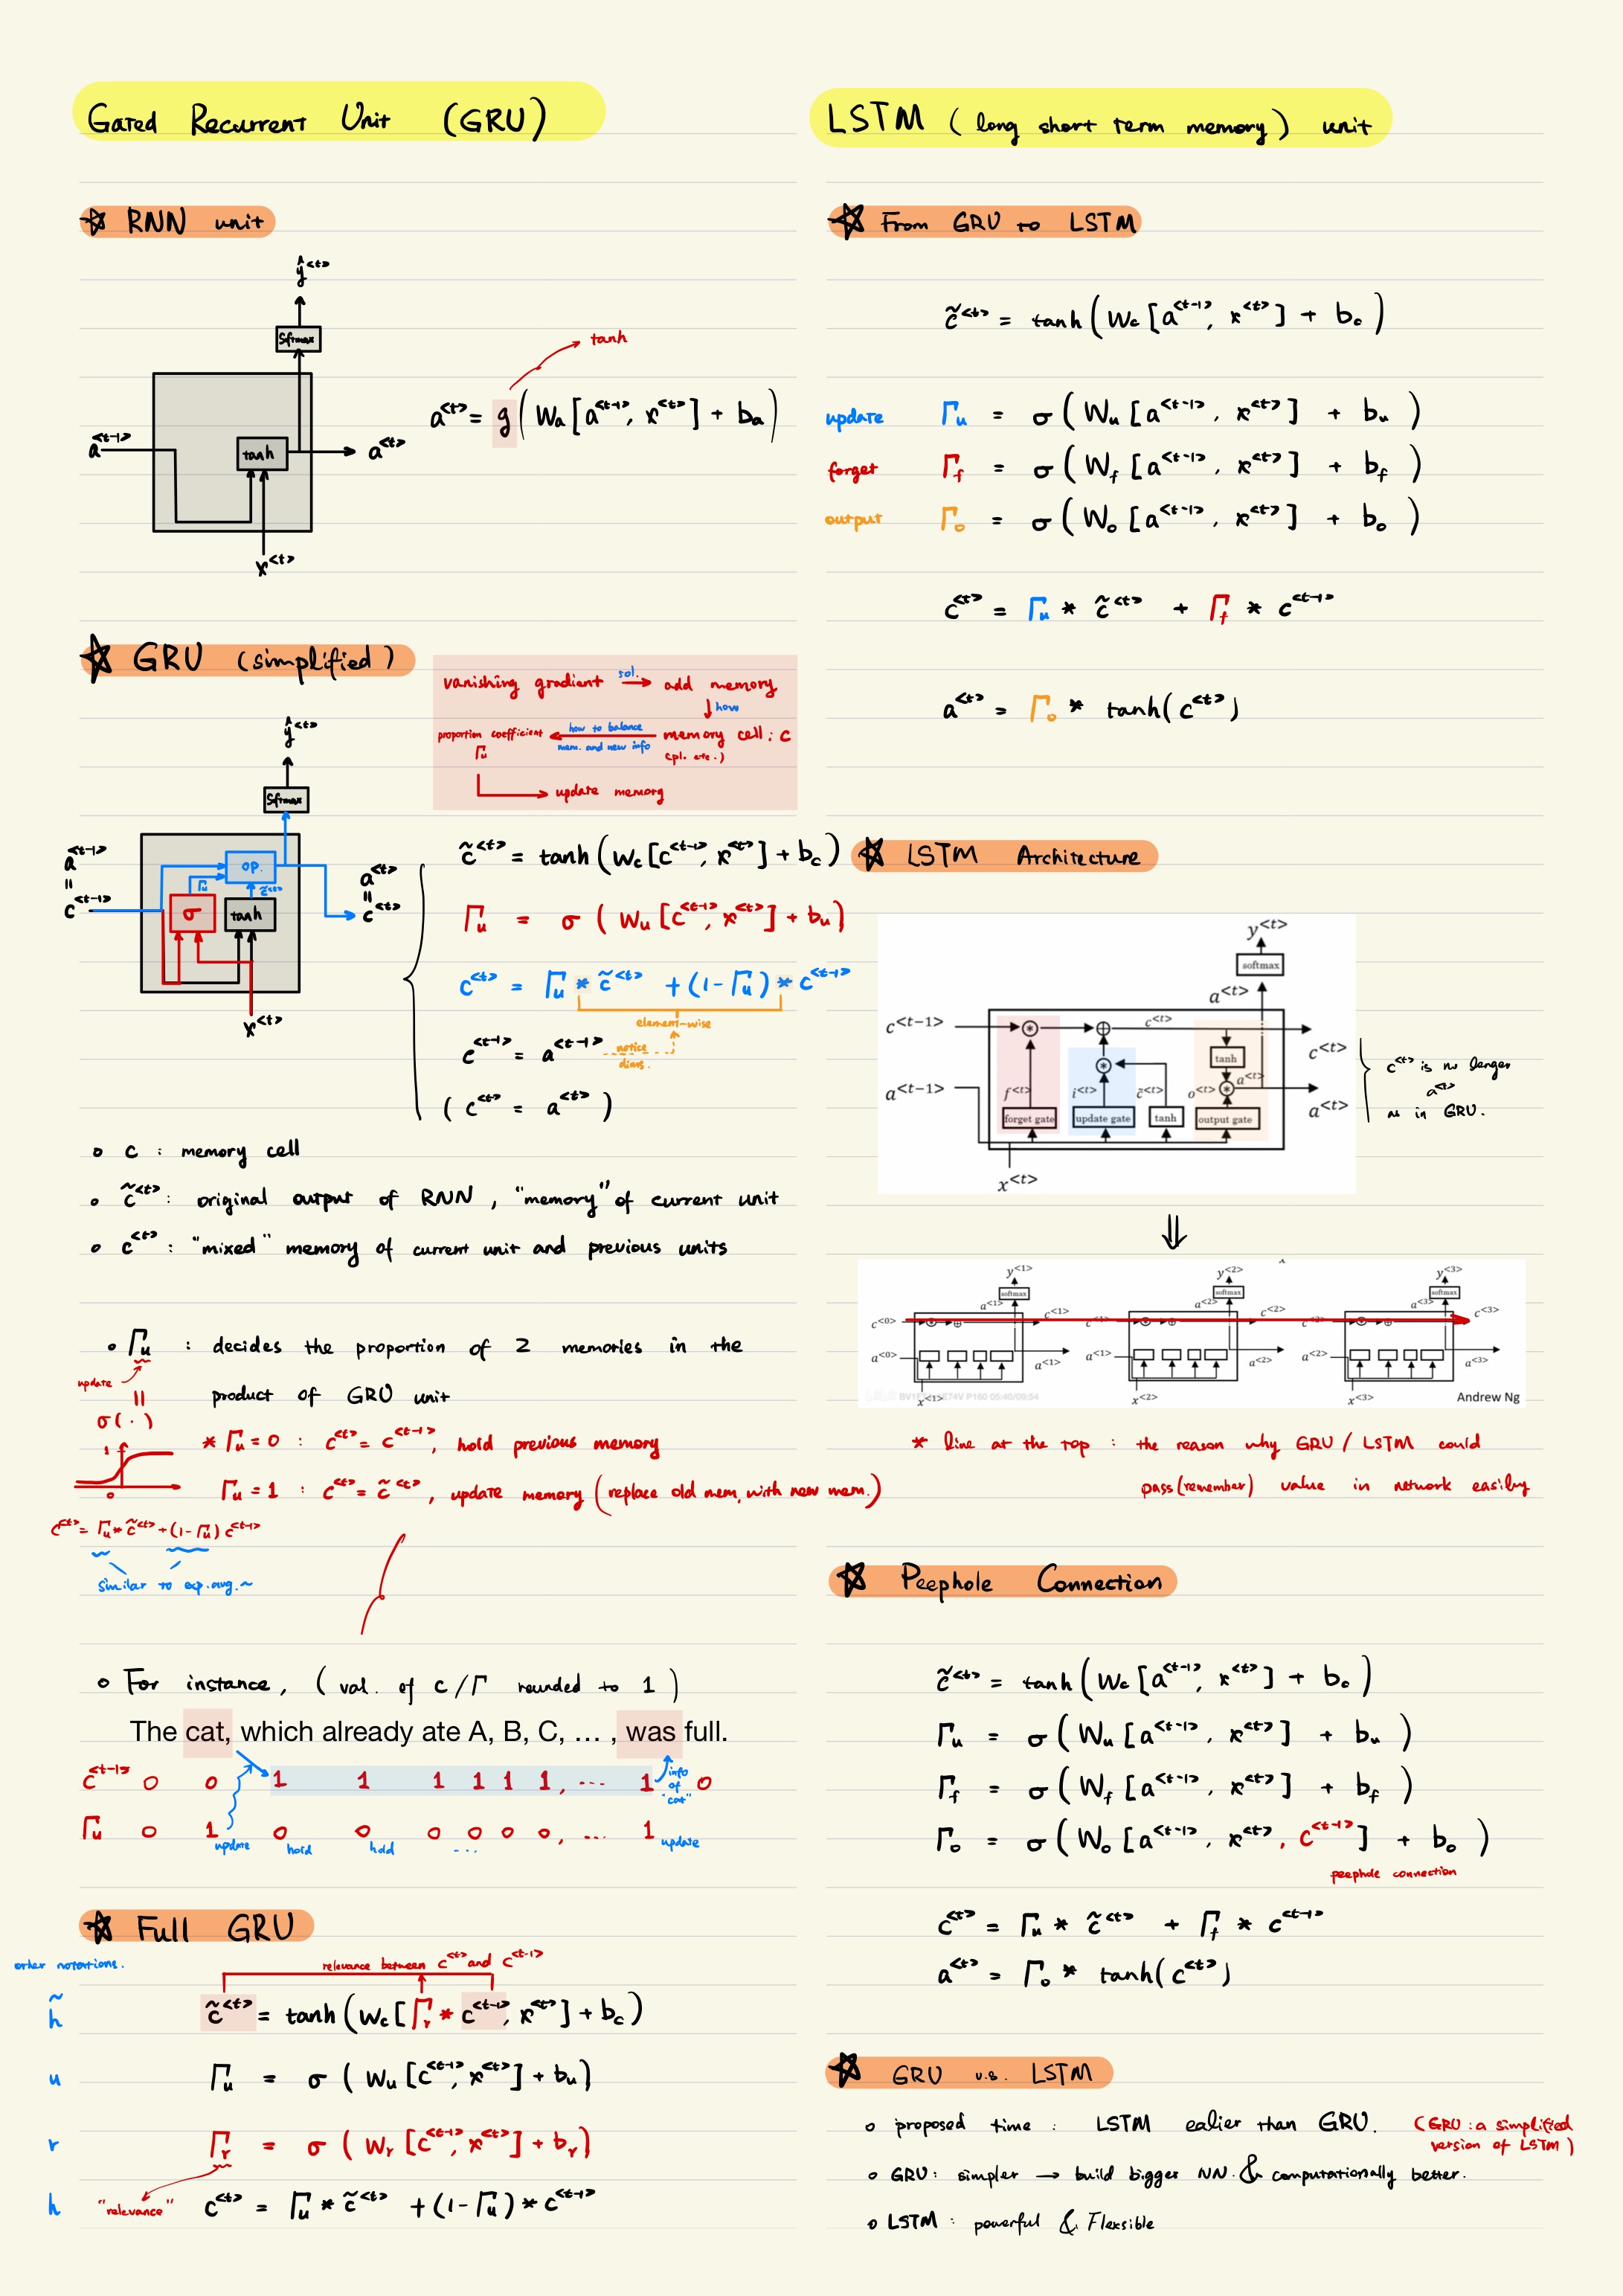 Gated Recurrent Unit (GRU)
☆ RNN unit
ŷ<t>
Sftmax
tanh
a<t-1>
tanh
a<t>
x<t>
a<t> = g(Wa[a<t-1>, x<t>] + ba)
☆ GRU (simplified)
vanishing gradient sol. → add memory
↓ how
proportion coefficient ← how to balance mem. and new info memory cell : c
Γu
(pl. etc.)
→ update memory
ŷ<t>
Sftmax
a<t-1>
=
c<t-1>
op.
Γu
c̃<t>
σ
tanh
a<t>
=
c<t>
x<t>
c̃<t> = tanh(Wc[c<t-1>, x<t>] + bc)
Γu = σ(Wu[c<t-1>, x<t>] + bu)
c<t> = Γu * c̃<t> + (1-Γu) * c<t-1>
element-wise
c<t-1> = a<t-1> notice dims.
(c<t> = a<t>)
∘ c : memory cell
∘ c̃<t> : original output of RNN, "memory" of current unit
∘ c<t> : "mixed" memory of current unit and previous units
∘ Γu : decides the proportion of 2 memories in the
update
product of GRU unit
=
σ(·)
1
0
* Γu = 0 : c<t> = c<t-1>, hold previous memory
Γu = 1 : c<t> = c̃<t>, update memory (replace old mem. with new mem.)
c<t> = Γu * c̃<t> + (1-Γu) c<t-1>
similar to exp. avg. ~
∘ For instance, (val. of c/Γ rounded to 1)
The cat, which already ate A, B, C, ... , was full.
c<t-1> 0 0 1 1 1 1 1 1, ... 1 info of "cat" 0
Γu 0 1 update 0 hold 0 hold 0 0 0 0, ... 1 update
...
☆ Full GRU
other notations.
relevance between c<t> and c<t-1>
h̃ c̃<t> = tanh(Wc[Γr * c<t-1>, x<t>] + bc)
u Γu = σ(Wu[c<t-1>, x<t>] + bu)
r Γr = σ(Wr[c<t-1>, x<t>] + br)
h "relevance" c<t> = Γu * c̃<t> + (1-Γu) * c<t-1>
LSTM (long short term memory) unit
☆ From GRU to LSTM
c̃<t> = tanh(Wc[a<t-1>, x<t>] + bc)
update Γu = σ(Wu[a<t-1>, x<t>] + bu)
forget Γf = σ(Wf[a<t-1>, x<t>] + bf)
output Γo = σ(Wo[a<t-1>, x<t>] + bo)
c<t> = Γu * c̃<t> + Γf * c<t-1>
a<t> = Γo * tanh(c<t>)
☆ LSTM Architecture
y<t>
softmax
a<t>
c<t-1>
c<t>
c<t>
tanh
a<t-1>
f<t> i<t> c̃<t> o<t> a<t>
a<t>
forget gate update gate tanh output gate
x<t>
c<t> is no longer
a<t>
as in GRU.
⇓
y<1> y<2> y<3>
softmax softmax softmax
a<1> a<2> a<3>
c<0> c<1> c<1> c<2> c<2> c<3>
a<0> a<1> a<1> a<2> a<2> a<3>
x<1> x<2> x<3>
P160 05:40/09:54
Andrew Ng
* line at the top : the reason why GRU / LSTM could
pass (remember) value in network easiby
☆ Peephole Connection
c̃<t> = tanh(Wc[a<t-1>, x<t>] + bc)
Γu = σ(Wu[a<t-1>, x<t>] + bu)
Γf = σ(Wf[a<t-1>, x<t>] + bf)
Γo = σ(Wo[a<t-1>, x<t>, c<t-1>] + bo)
peephole connection
c<t> = Γu * c̃<t> + Γf * c<t-1>
a<t> = Γo * tanh(c<t>)
☆ GRU v.s. LSTM
∘ proposed time : LSTM ealier than GRU. (GRU : a simplified
version of LSTM)
∘ GRU : simpler → build bigger NN. & computationally better.
∘ LSTM : powerful & Flexsible